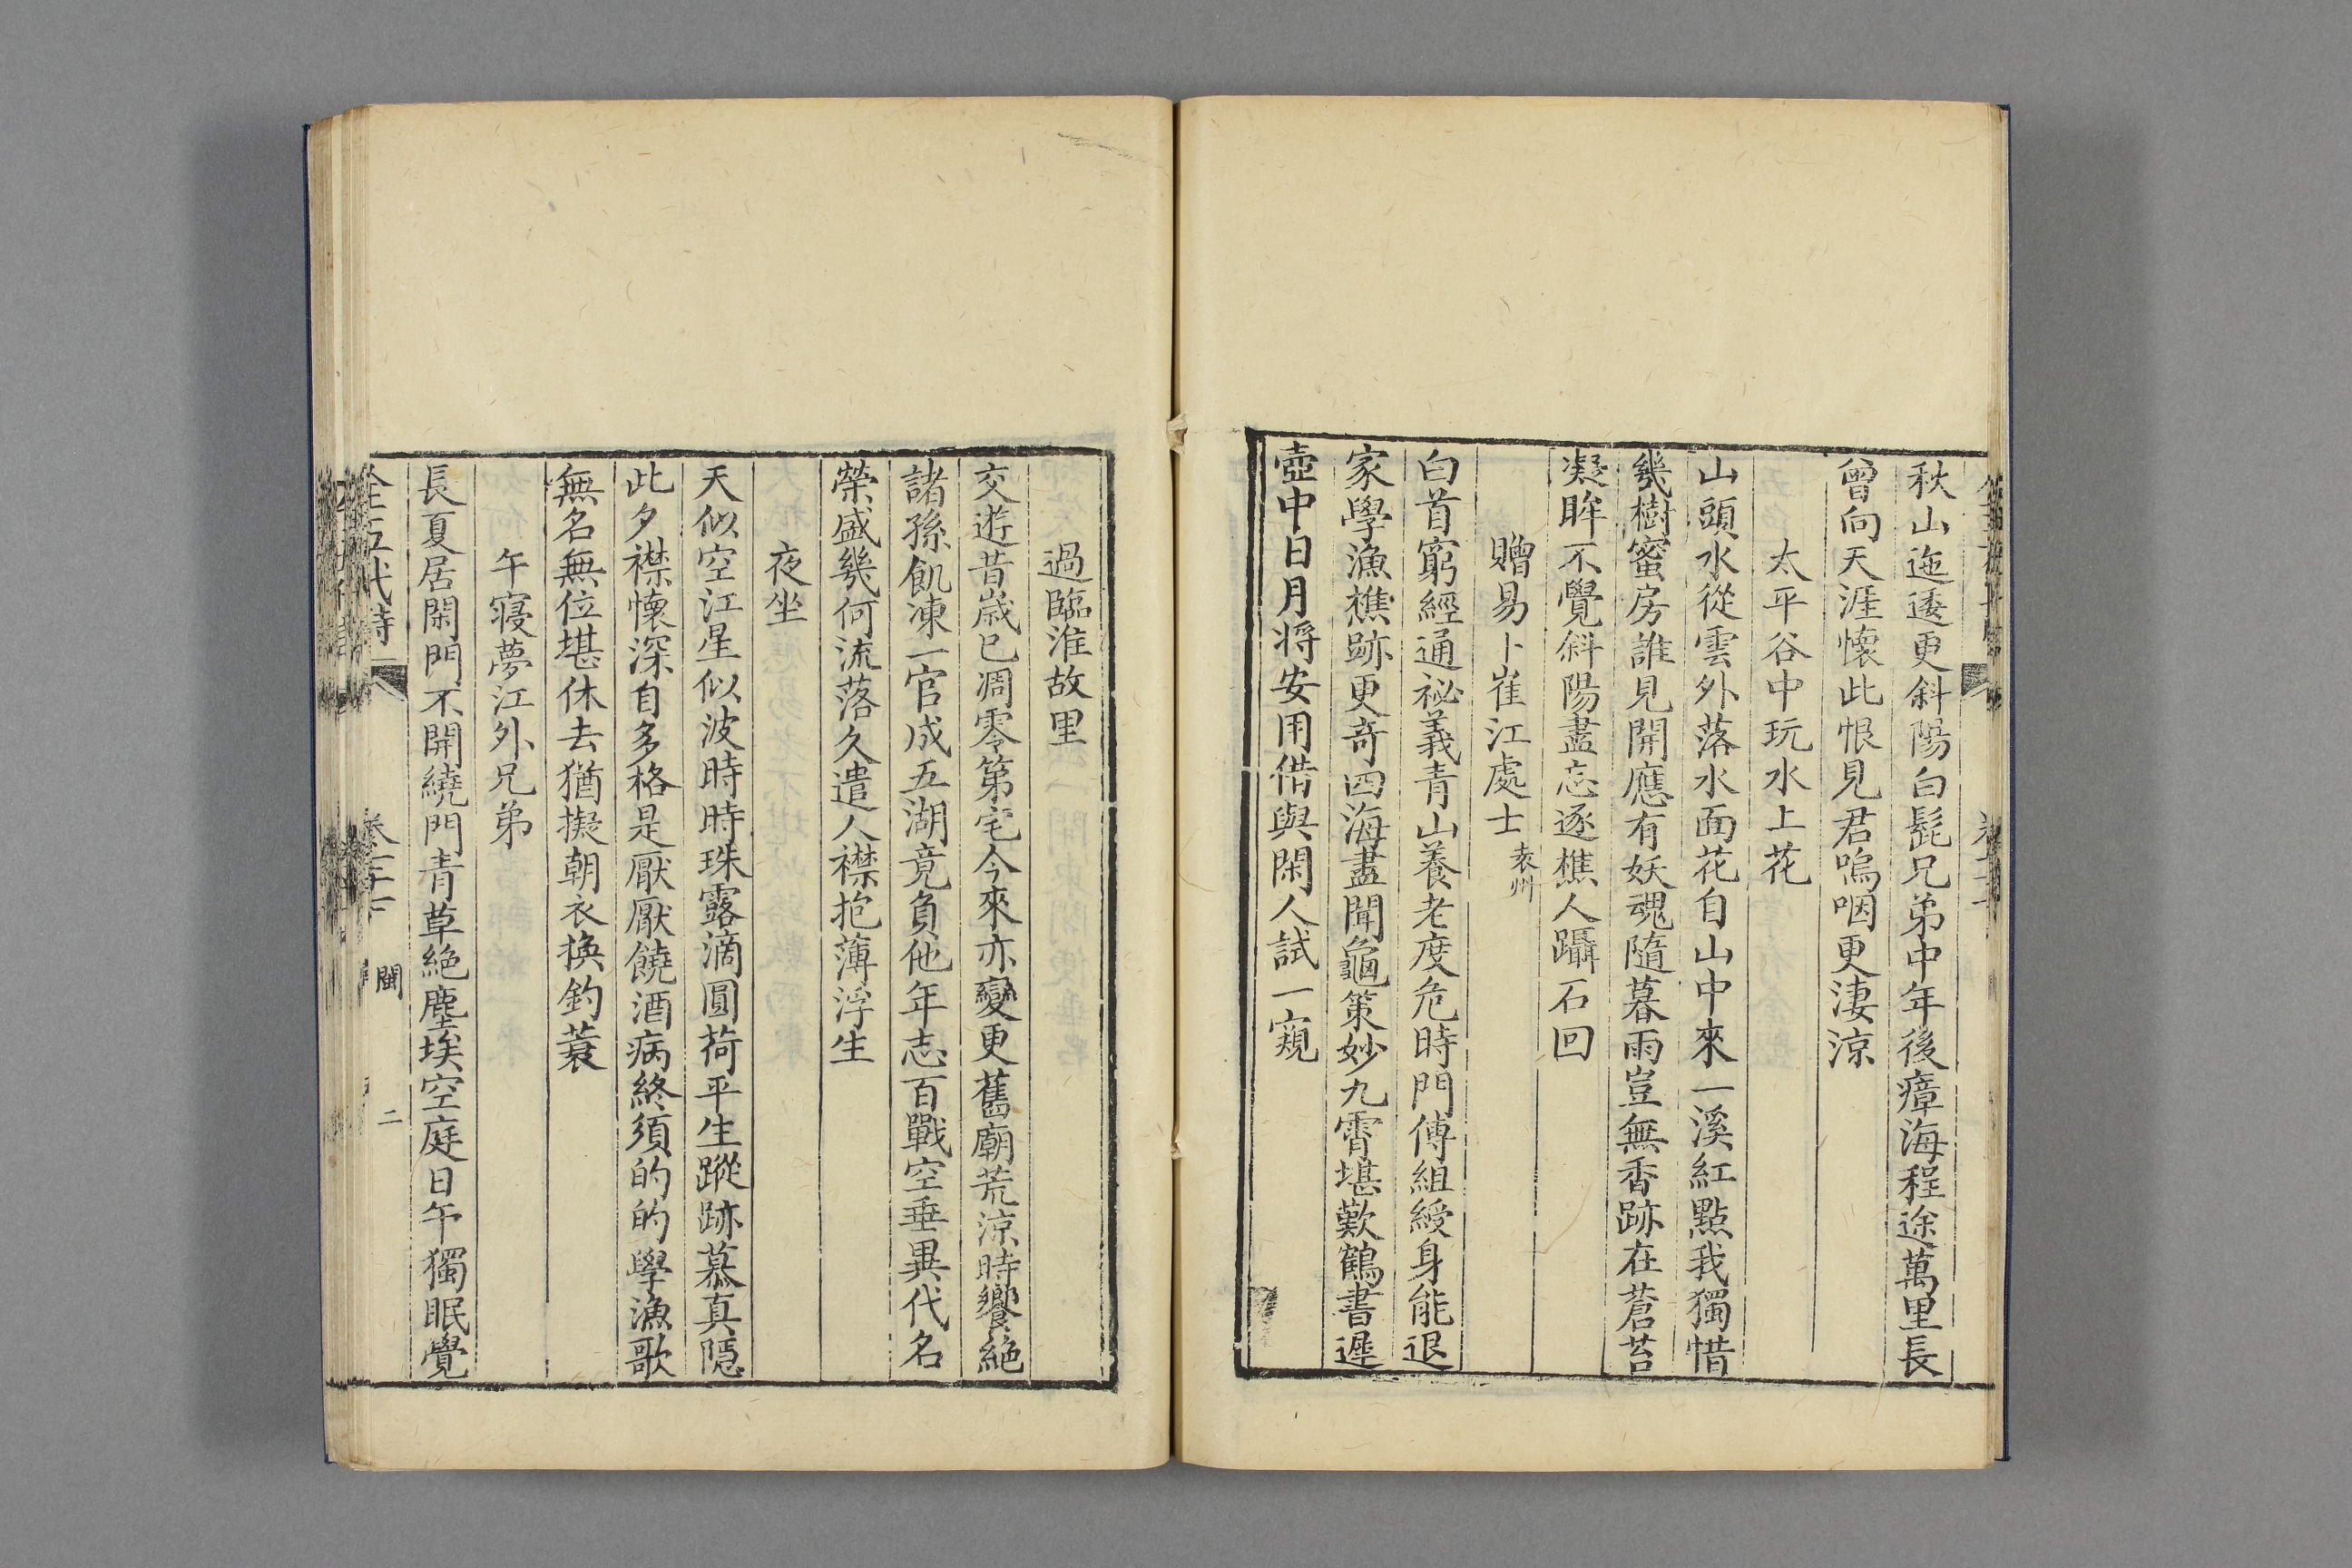 秋山迤逶更斜陽白髭兄弟中年後瘴海程途萬里長
曾向天涯懷此恨見君嗚咽更淒涼
太平谷中玩水上花
山頭水從雲外落水面花自山中來一溪紅點我獨惜
幾樹蜜房誰見開應有妖魂隨暮雨豈無香跡在蒼苔
凝眸不覺斜陽盡忘逐樵人躡石回
贈易卜崔江處士袁州
白首窮經通祕義青山養老度危時門傳組綬身能退
家學漁樵跡更奇四海盡聞龜策妙九霄堪歎鶴書遲
壺中日月將安用借與閑人試一窺
過臨淮故里
交遊昔歲已凋零第宅今來亦變更舊廟荒涼時饗絕
諸孫飢凍一官成五湖竟負他年志百戰空垂異代名
榮盛幾何流落久遣人襟抱薄浮生
夜坐
天似空江星似波時時珠露滴圓荷平生蹤跡慕真隱
此夕襟懷深自多格是厭厭饒酒病終須的的學漁歌
無名無位堪休去猶擬朝衣換釣蓑
午寢夢江外兄弟
長夏居閑門不開繞門青草絕塵埃空庭日午獨眠覺
全五代詩 閩 二